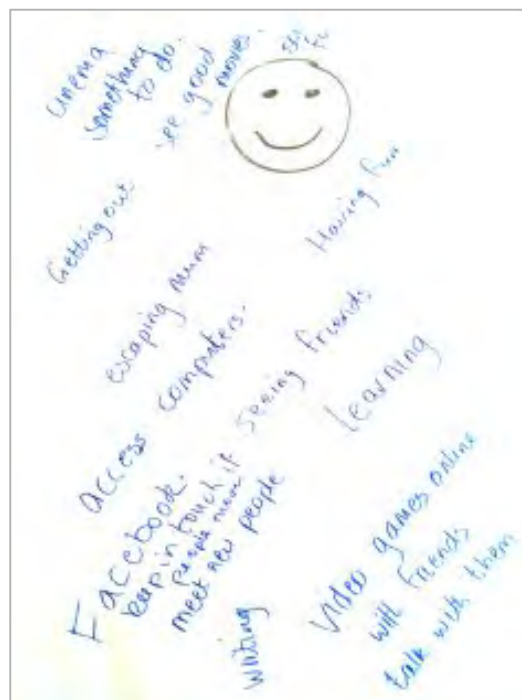 cinema
something
to do.
see good
movies.
Getting out
Having fun
escaping mum
access computers.
seeing friends
learning
Facebook.
keep in touch if
people move
meet new people
writing
video games online
with friends
talk with them